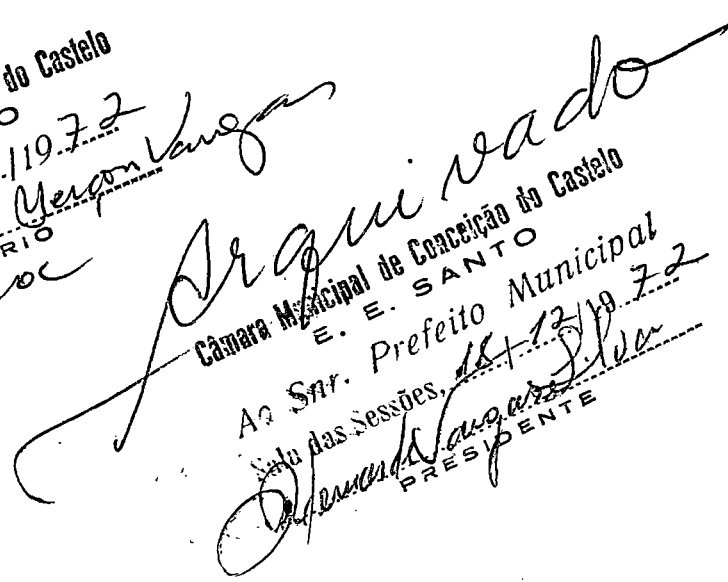 do Castelo
O
/1972
Merçon Vargas
RIO
Arquivado
Câmara Municipal de Conceição do Castelo
E. E. SANTO
Ao Snr. Prefeito Municipal
Sala das Sessões, 18/12/1972
Vargas Silva
PRESIDENTE